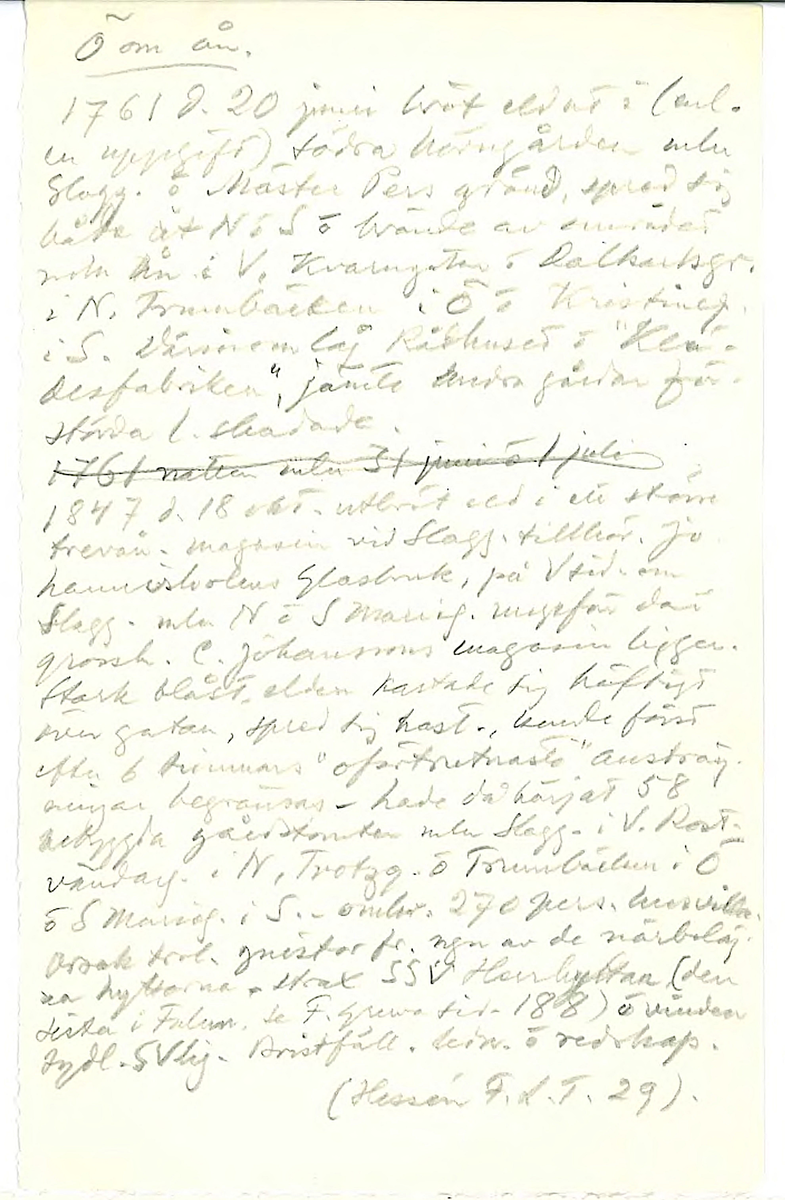 Ö om ån.
1761 d. 20 juni bröt eldut i (enl.
en uppgift) södra hörngården mln
Slagg. ö Mäster Pers gränd, spred sig
både åt N ö S ö brände av området
mln ån i V, Kvarngatan ö Dalkarlsgr.
i N, Trumbäcken i Ö ö Kristineg.
i S. Därinom låg Rådhuset ö "Klä-
desfabriken", jämte andra gårdar för-
störda l. skadade.
1761 natten mln 31 juni ö 1 juli
1847 d. 18 okt. utbröt eld i ett större
trevån. magasin vid Slagg. tillhör. Jo
hannisholms Glasbruk, på V sid. om
Slagg. mln N ö S Marieg. ungefär där
grossh. C. Johanssons magasin ligger.
Stark blåst, elden kastade sig häftigt
över gatan, spred sig hast., kunde först
efter 6 timmars "oförtrutnaste" ansträng.
ningar begränsas – hade då härjat 58
bebyggda gårdstomter mln Slagg. i V. Rost-
vändarg. i N, Trotzg. ö Trumbäcken i Ö
ö S Marieg. i S. – omkr. 270 pers. husvilla.
Orsak trol. gnistor fr. ngn av de närbeläg.
na hyttorna – strax SSV Herrhyttan (den
sista i Falun, se F. Gruva sid. 188) ö vinden
sydl.-SVlig. Bristfäll. ö redskap.
(Hessén F.L.T. 29).